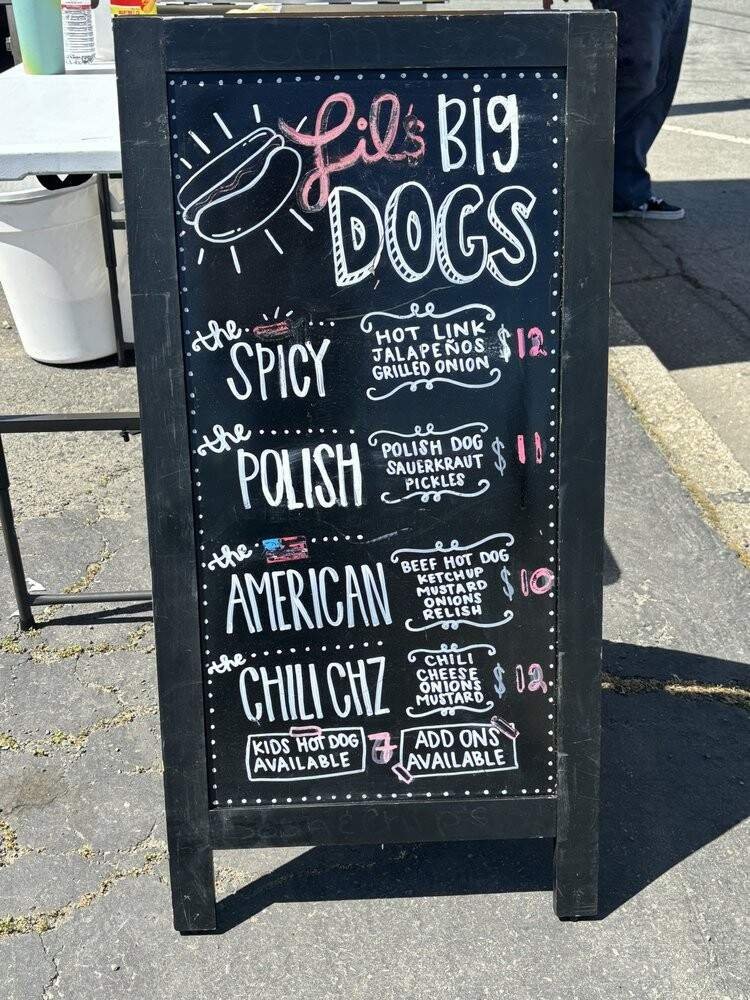 Lil's BIG
DOGS
the
SPICY
HOT LINK
JALAPEÑOS
GRILLED ONION
$12
the
POLISH
POLISH DOG
SAUERKRAUT
PICKLES
$11
the
AMERICAN
BEEF HOT DOG
KETCHUP
MUSTARD
ONIONS
RELISH
$10
the
CHILI CHZ
CHILI
CHEESE
ONIONS
MUSTARD
$12
KIDS HOT DOG
AVAILABLE
7
ADD ONS
AVAILABLE